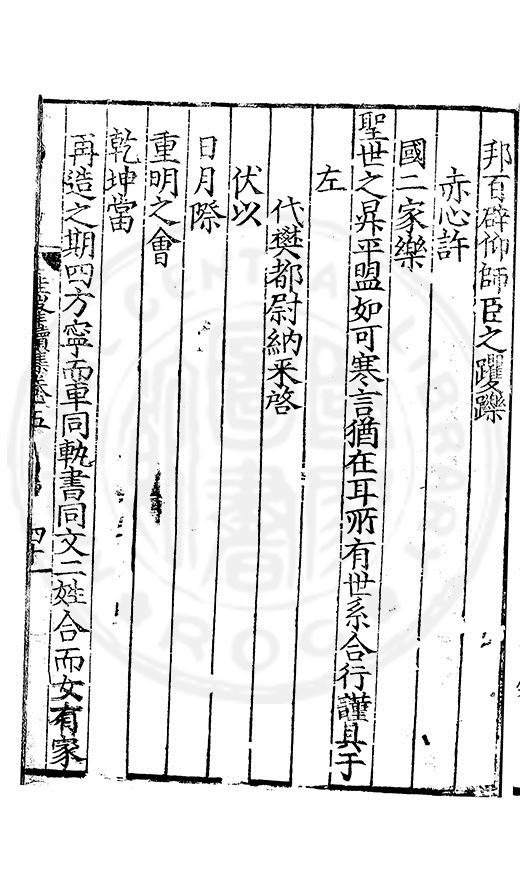 邦百辟仰師臣之躩躒
赤心許
國二家樂
聖世之昇平盟如可寒言猶在耳所有世系合行謹具于
左
代樊都尉納采啓
伏以
日月際
重明之會
乾坤當
再造之期四方寧而車同軌書同文二姓合而女有家